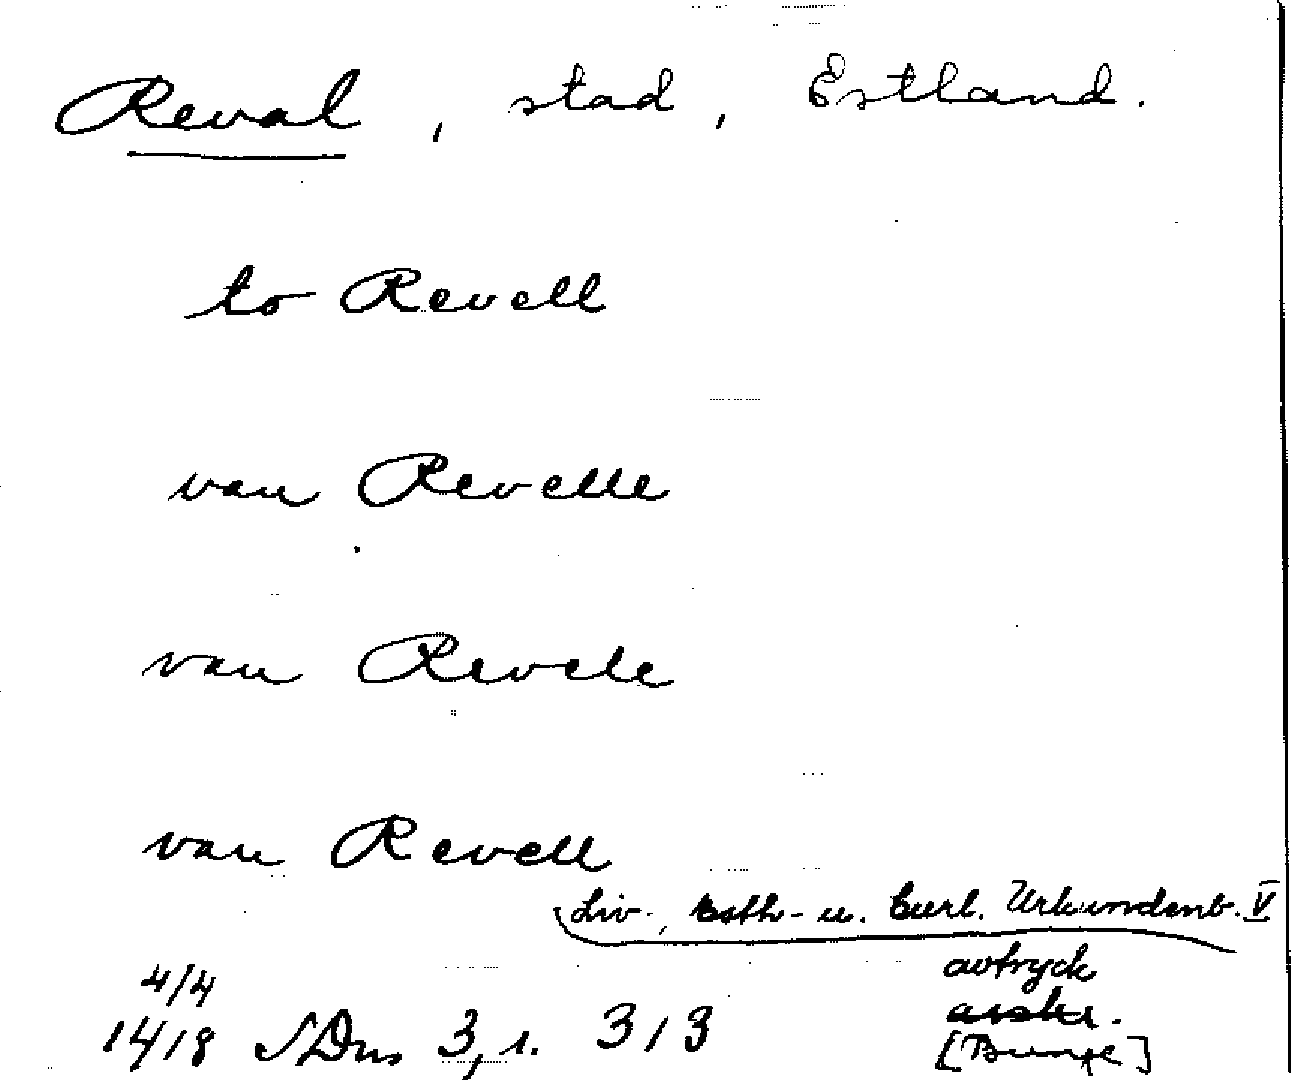 Reval, stad, Estland.
to Revell
van Revelle
van Revele
van Revell
Liv-, Esth- u. Curl. Urkundenb. V
4/4 avtryck
1418 SDns 3, s. 313
[Bunge]